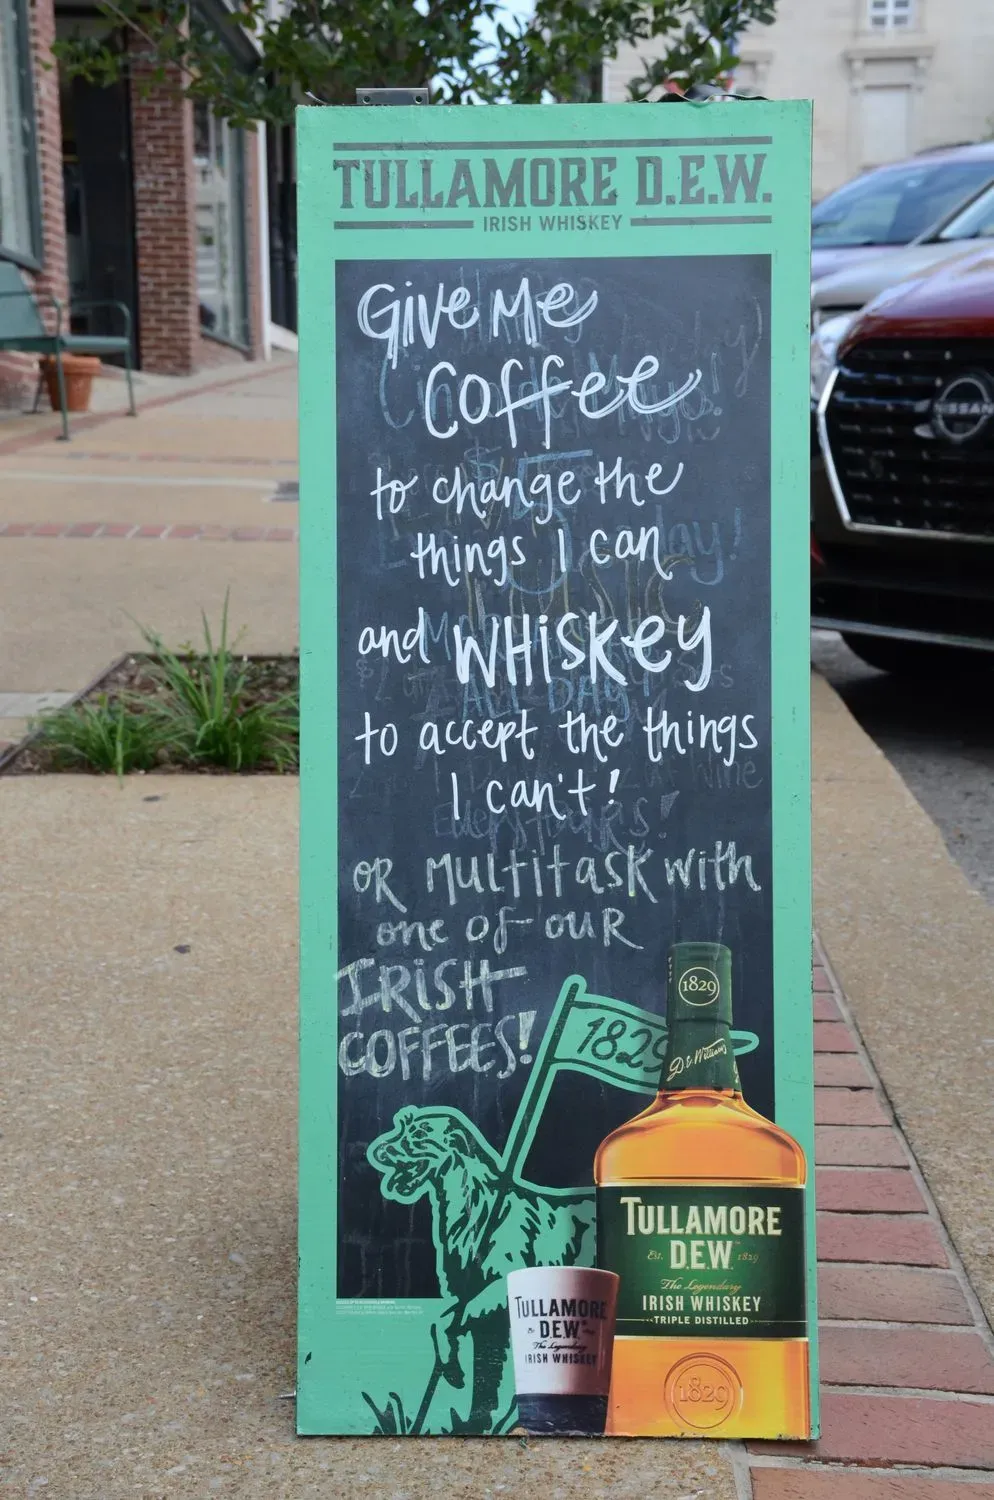 TULLAMORE D.E.W.
IRISH WHISKEY
Give Me
Coffee
to change the
things I can
and WHISKEY
to accept the things
I can't!
OR MULTITASK with
one of OUR
IRISH
COFFEES!
1829
1829
D.E. Williams
TULLAMORE
D.E.W.
Est. 1829
The Legendary
IRISH WHISKEY
TRIPLE DISTILLED
1829
TULLAMORE
D.E.W.
The Legendary
IRISH WHISKEY
NISSAN